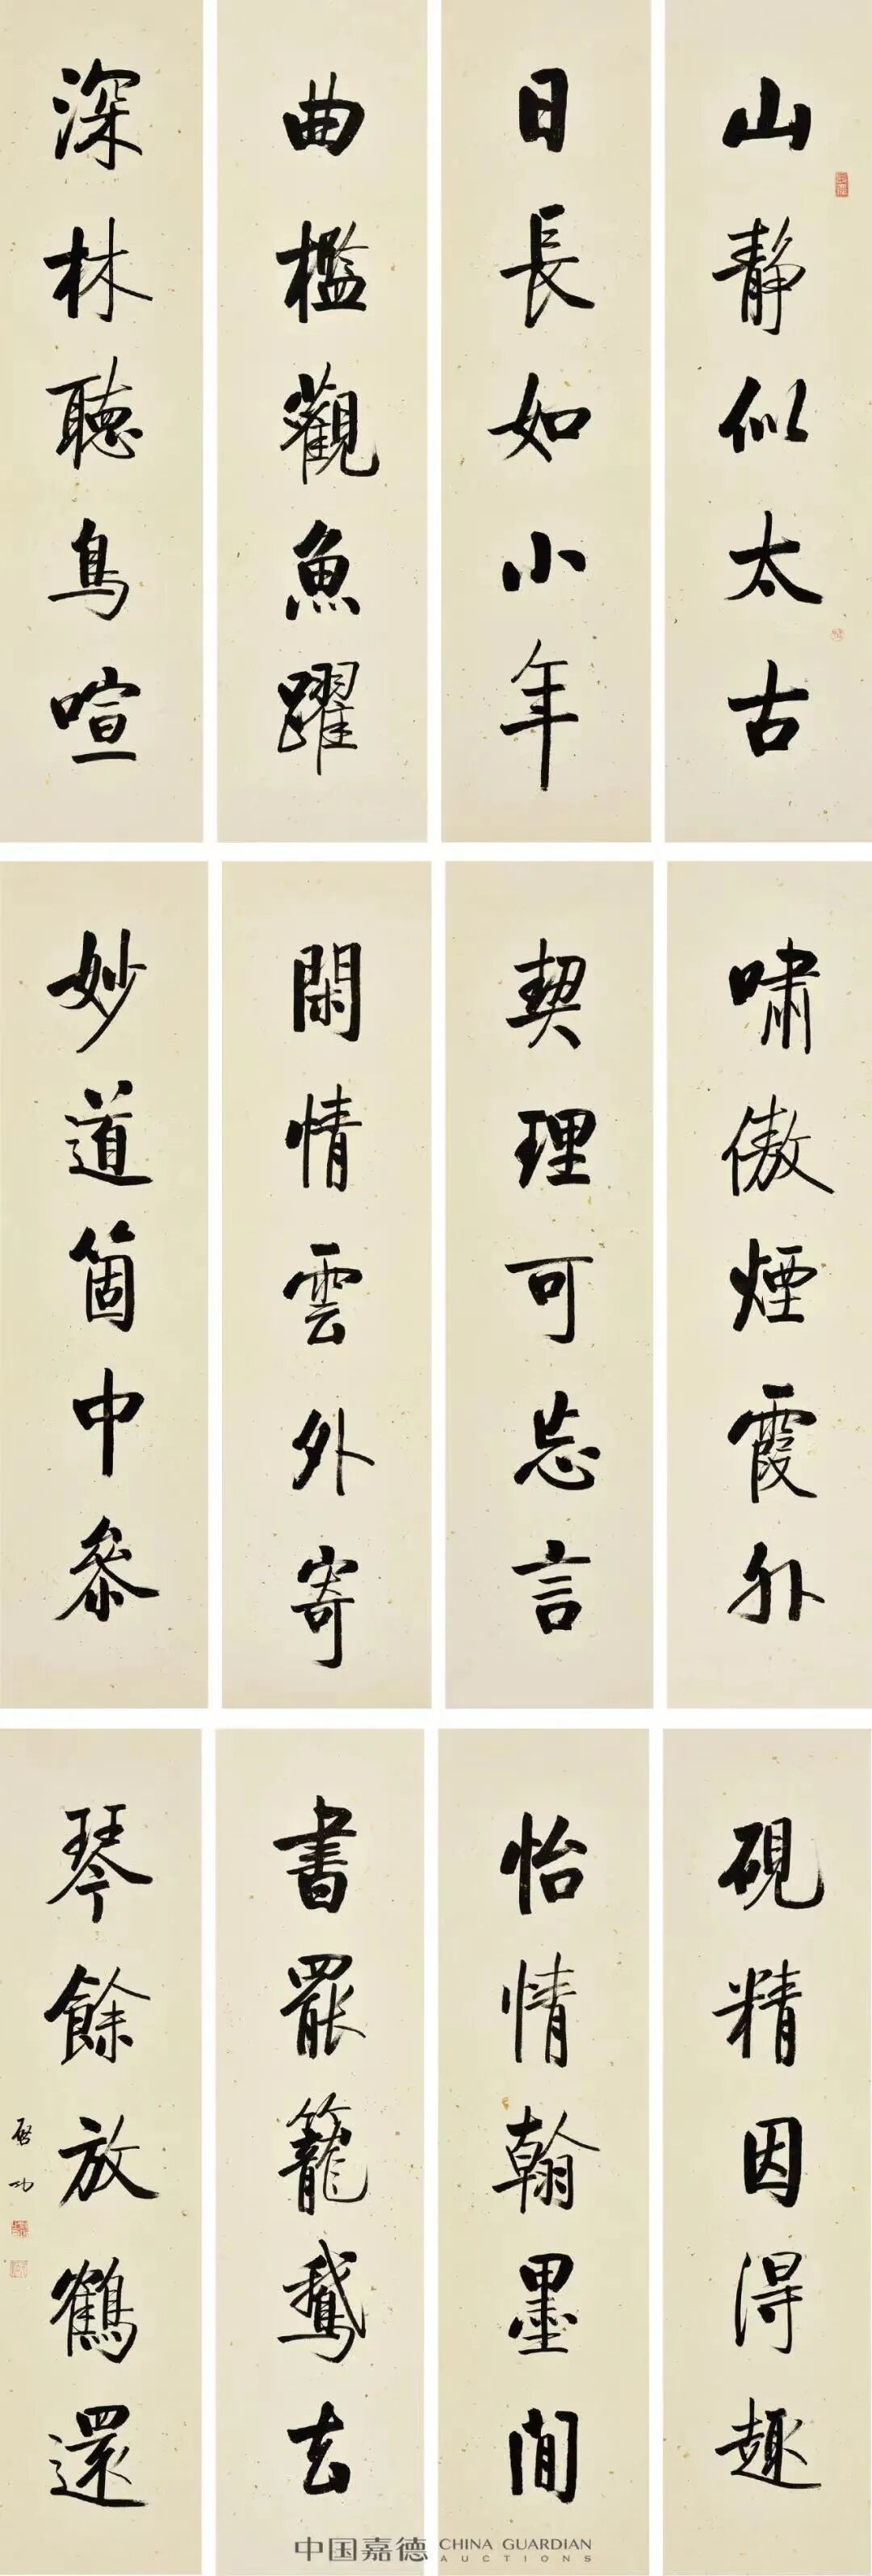 山静似太古
日長如小年
曲檻觀魚躍
深林聽鳥喧
嘯傲煙霞外
契理可忘言
閑情雲外寄
妙道箇中參
硯精因得趣
怡情翰墨間
書罷籠鵝去
琴餘放鶴還
启功
中国嘉德 CHINA GUARDIAN AUCTIONS